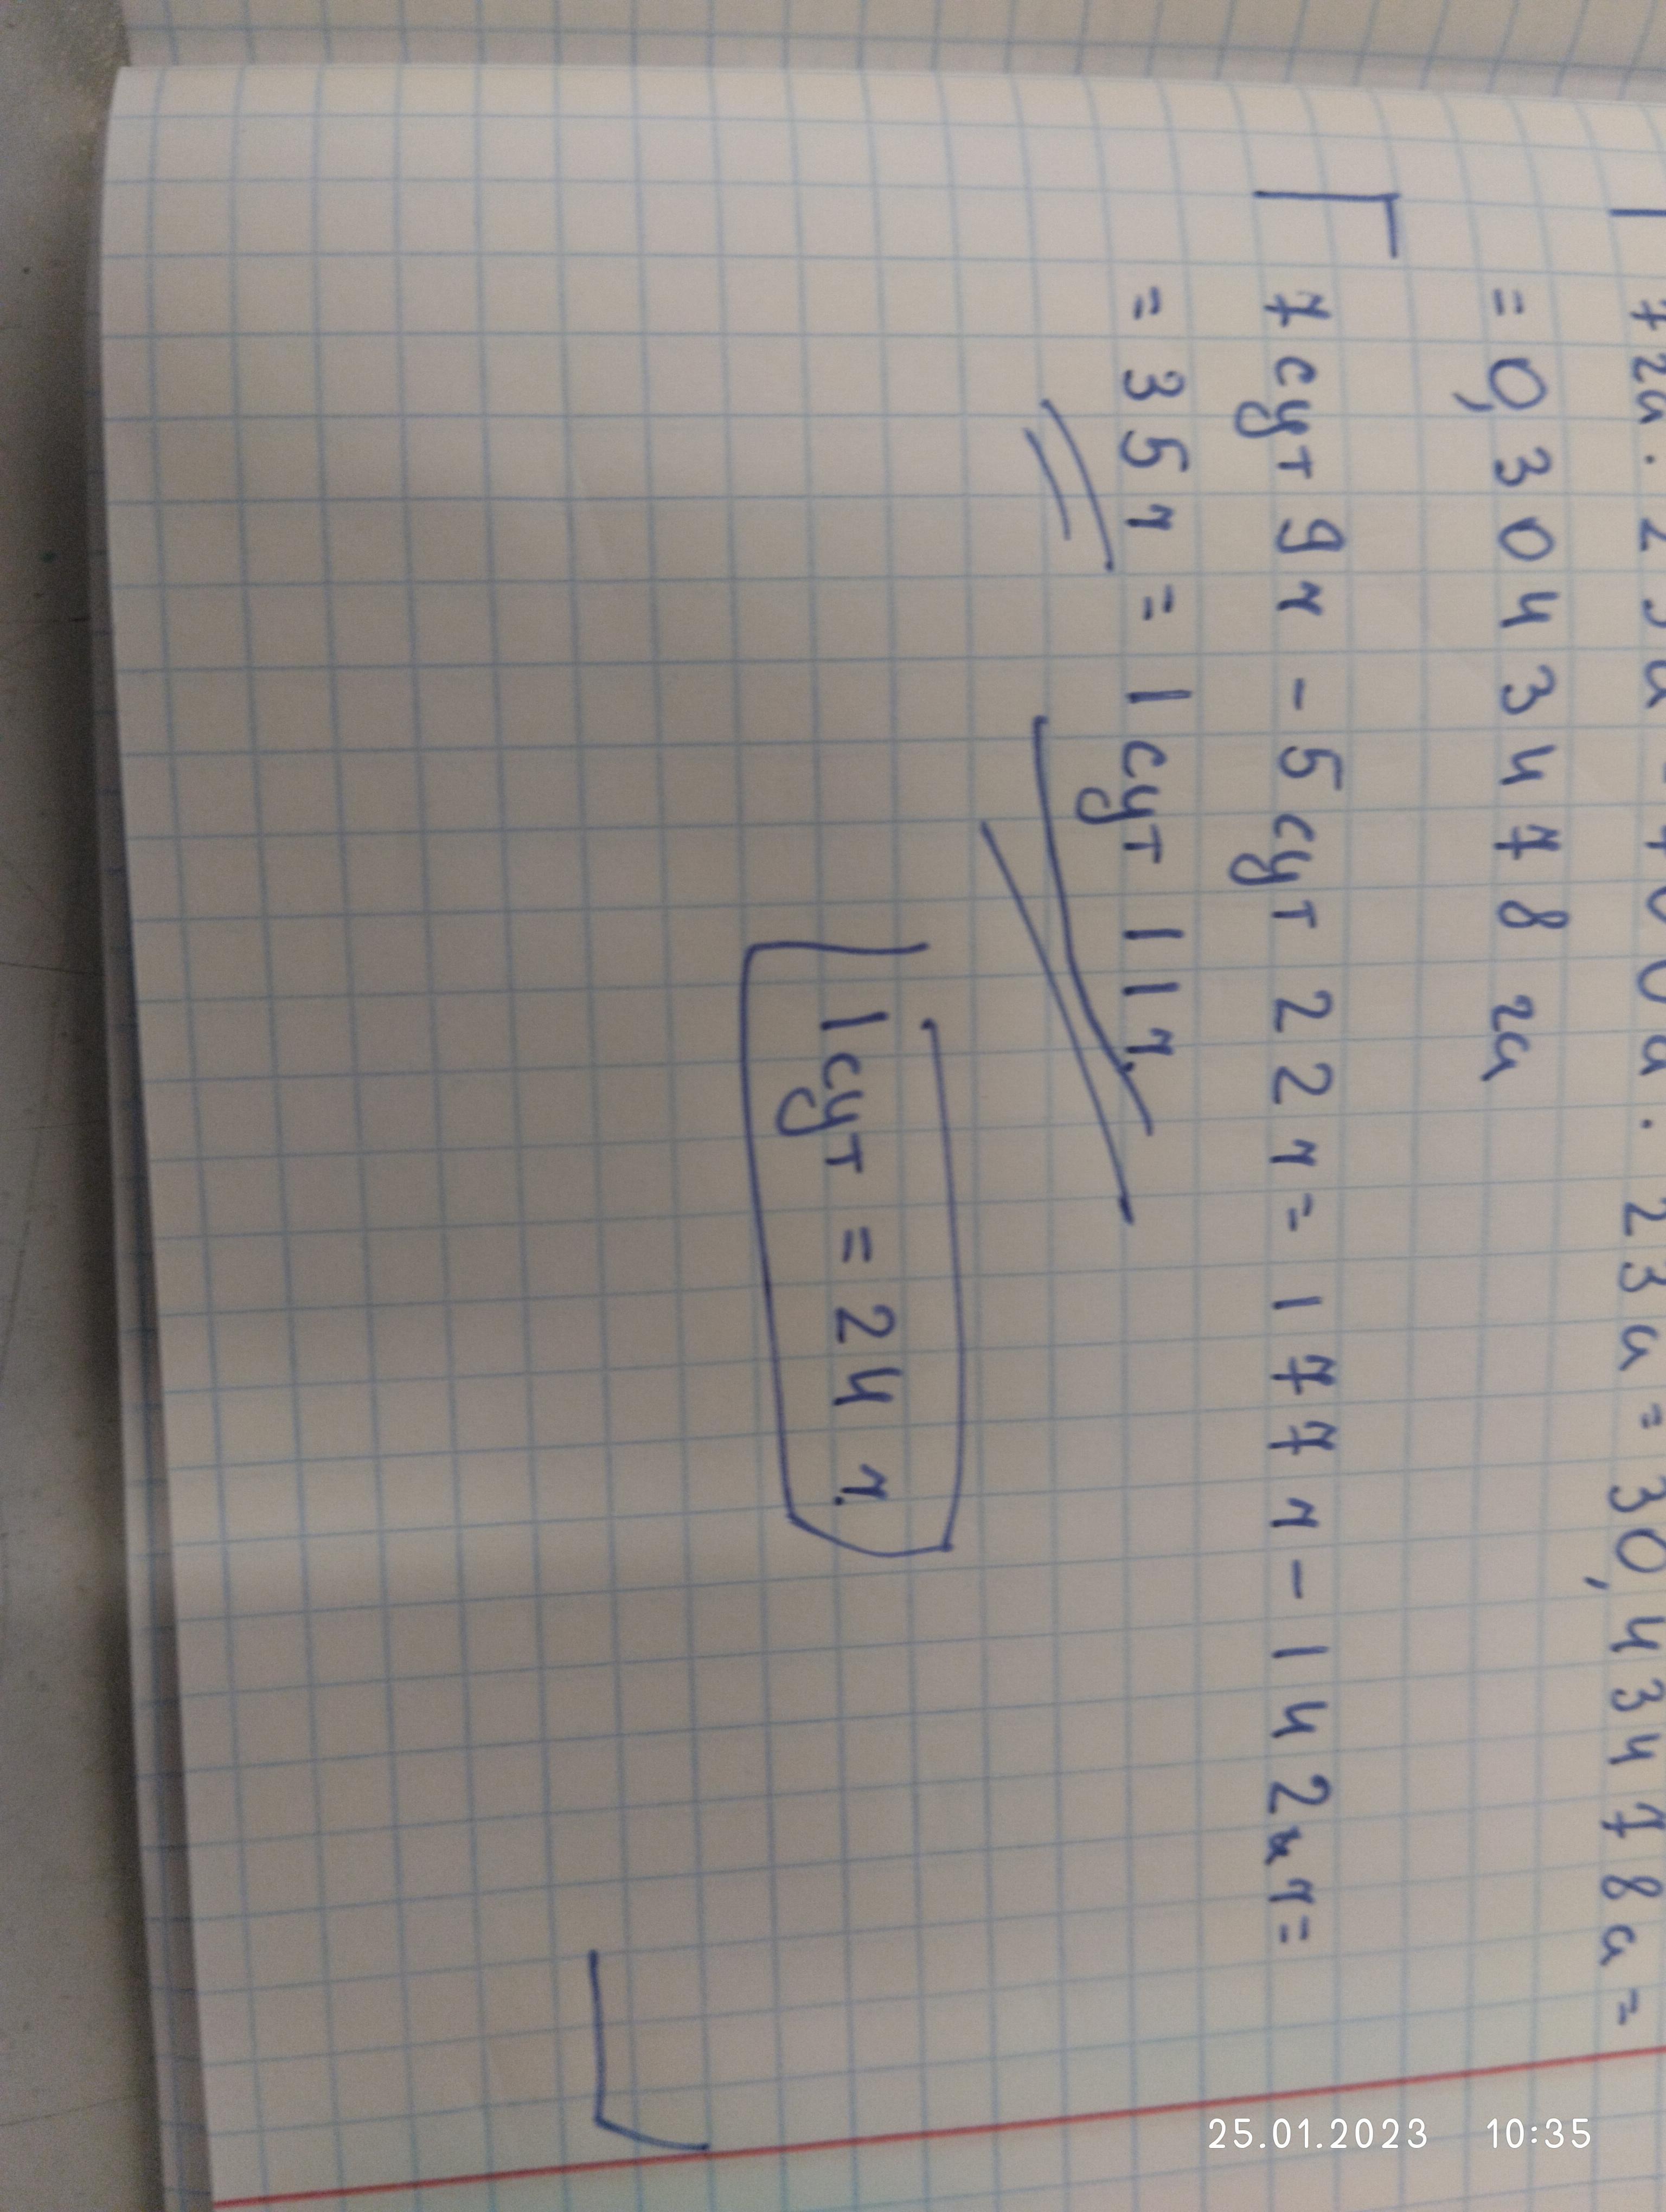 7га : 23а = 700а : 23а = 30,43478а =
= 0,3043478 га
7 сут 9ч - 5 сут 22ч = 177ч - 142ч =
= 35ч = 1 сут 11ч.
1сут = 24 ч.
25.01.2023 10:35